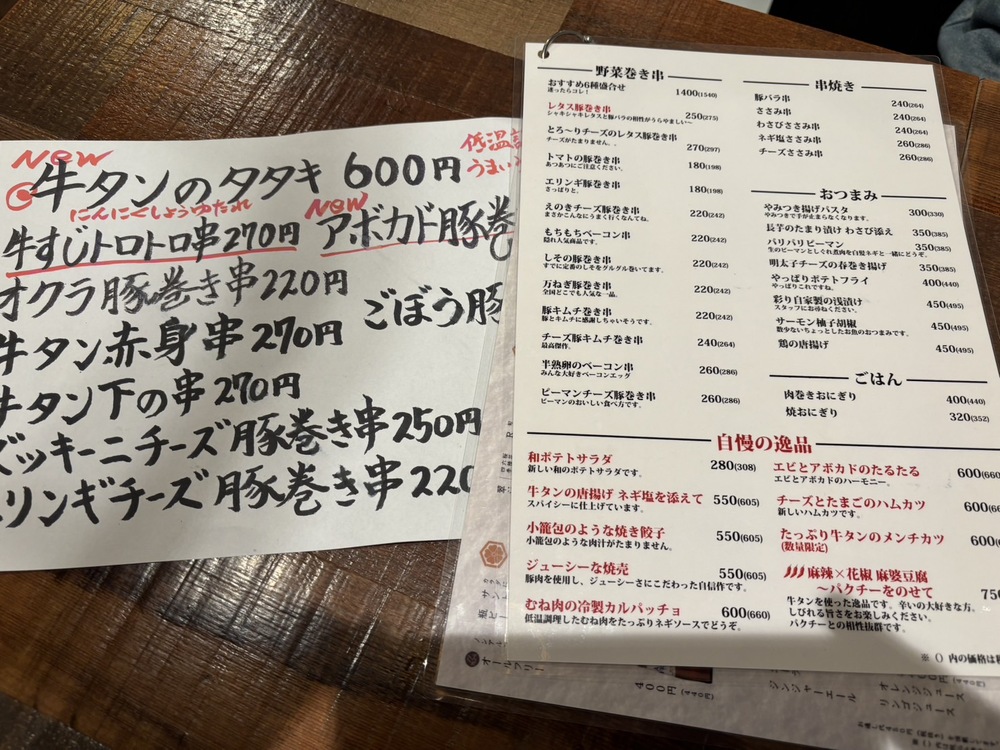 New
牛タンのタタキ 600円
低温
うまい
にんにくしょうゆたれ
牛すじトロトロ串270円
New
アボカド豚巻
オクラ豚巻き串220円
ごぼう豚
牛タン赤身串270円
牛タン下の串270円
ズッキーニチーズ豚巻き串250円
リンギチーズ豚巻き串220
野菜巻き串
おすすめ6種盛合せ 1400(1540)
迷ったらコレ!
レタス豚巻き串 250(275)
シャキシャキレタスと豚バラの相性がうらやましい〜
とろ〜りチーズのレタス豚巻き串
チーズがたまりません。。 270(297)
トマトの豚巻き串 180(198)
あつあつにご注意ください。
エリンギ豚巻き串 180(198)
さっぱりと。
えのきチーズ豚巻き串 220(242)
まさかこんなにうまく行くなんてね。
もちもちベーコン串 220(242)
隠れ人気商品です。
しその豚巻き串 220(242)
すでに定番のしそをグルグル巻いてます。
万ねぎ豚巻き串 220(242)
全国どこでも人気な一品。
豚キムチ巻き串 220(242)
豚とキムチに感謝しちゃいそうです。
チーズ豚キムチ巻き串 240(264)
最高傑作。
半熟卵のベーコン串 260(286)
みんな大好きベーコンエッグ
ピーマンチーズ豚巻き串 260(286)
ピーマンのおいしい食べ方です。
串焼き
豚バラ串 240(264)
ささみ串 240(264)
わさびささみ串 240(264)
ネギ塩ささみ串 260(286)
チーズささみ串 260(286)
おつまみ
やみつき揚げパスタ 300(330)
やみつきで手が止まらなくなります。
長芋のたまり漬け わさび添え 350(385)
パリパリピーマン 350(385)
生のピーマンとしぐれ煮肉を白髪ネギと一緒にどうぞ。
明太子チーズの春巻き揚げ 350(385)
やっぱりポテトフライ 400(440)
やっぱりこれですね。
彩り自家製の浅漬け 450(495)
スタッフにお尋ねください。
サーモン柚子胡椒 450(495)
数少ないちょっとしたお魚のおつまみです。
鶏の唐揚げ 450(495)
ごはん
肉巻きおにぎり 400(440)
焼おにぎり 320(352)
自慢の逸品
和ポテトサラダ 280(308)
新しい和のポテトサラダです。
牛タンの唐揚げ ネギ塩を添えて 550(605)
スパイシーに仕上げています。
小籠包のような焼き餃子 550(605)
小籠包のような肉汁がたまりません。
ジューシーな焼売 550(605)
豚肉を使用し、ジューシーさにこだわった自信作です。
むね肉の冷製カルパッチョ 600(660)
低温調理したむね肉をたっぷりネギソースでどうぞ。
エビとアボカドのたるたる 600(660
エビとアボカドのハーモニー。
チーズとたまごのハムカツ 600(66
新しいハムカツです。
たっぷり牛タンのメンチカツ 600(
(数量限定)
麻辣×花椒 麻婆豆腐
〜パクチーをのせて 750
牛タンを使った逸品です。辛いの大好きな方、
しびれる旨さをお楽しみください。
パクチーとの相性抜群です。
※()内の価格は税
オールフリー
400円(440円)
ジンジャーエール
オレンジジュース
リンゴジュース